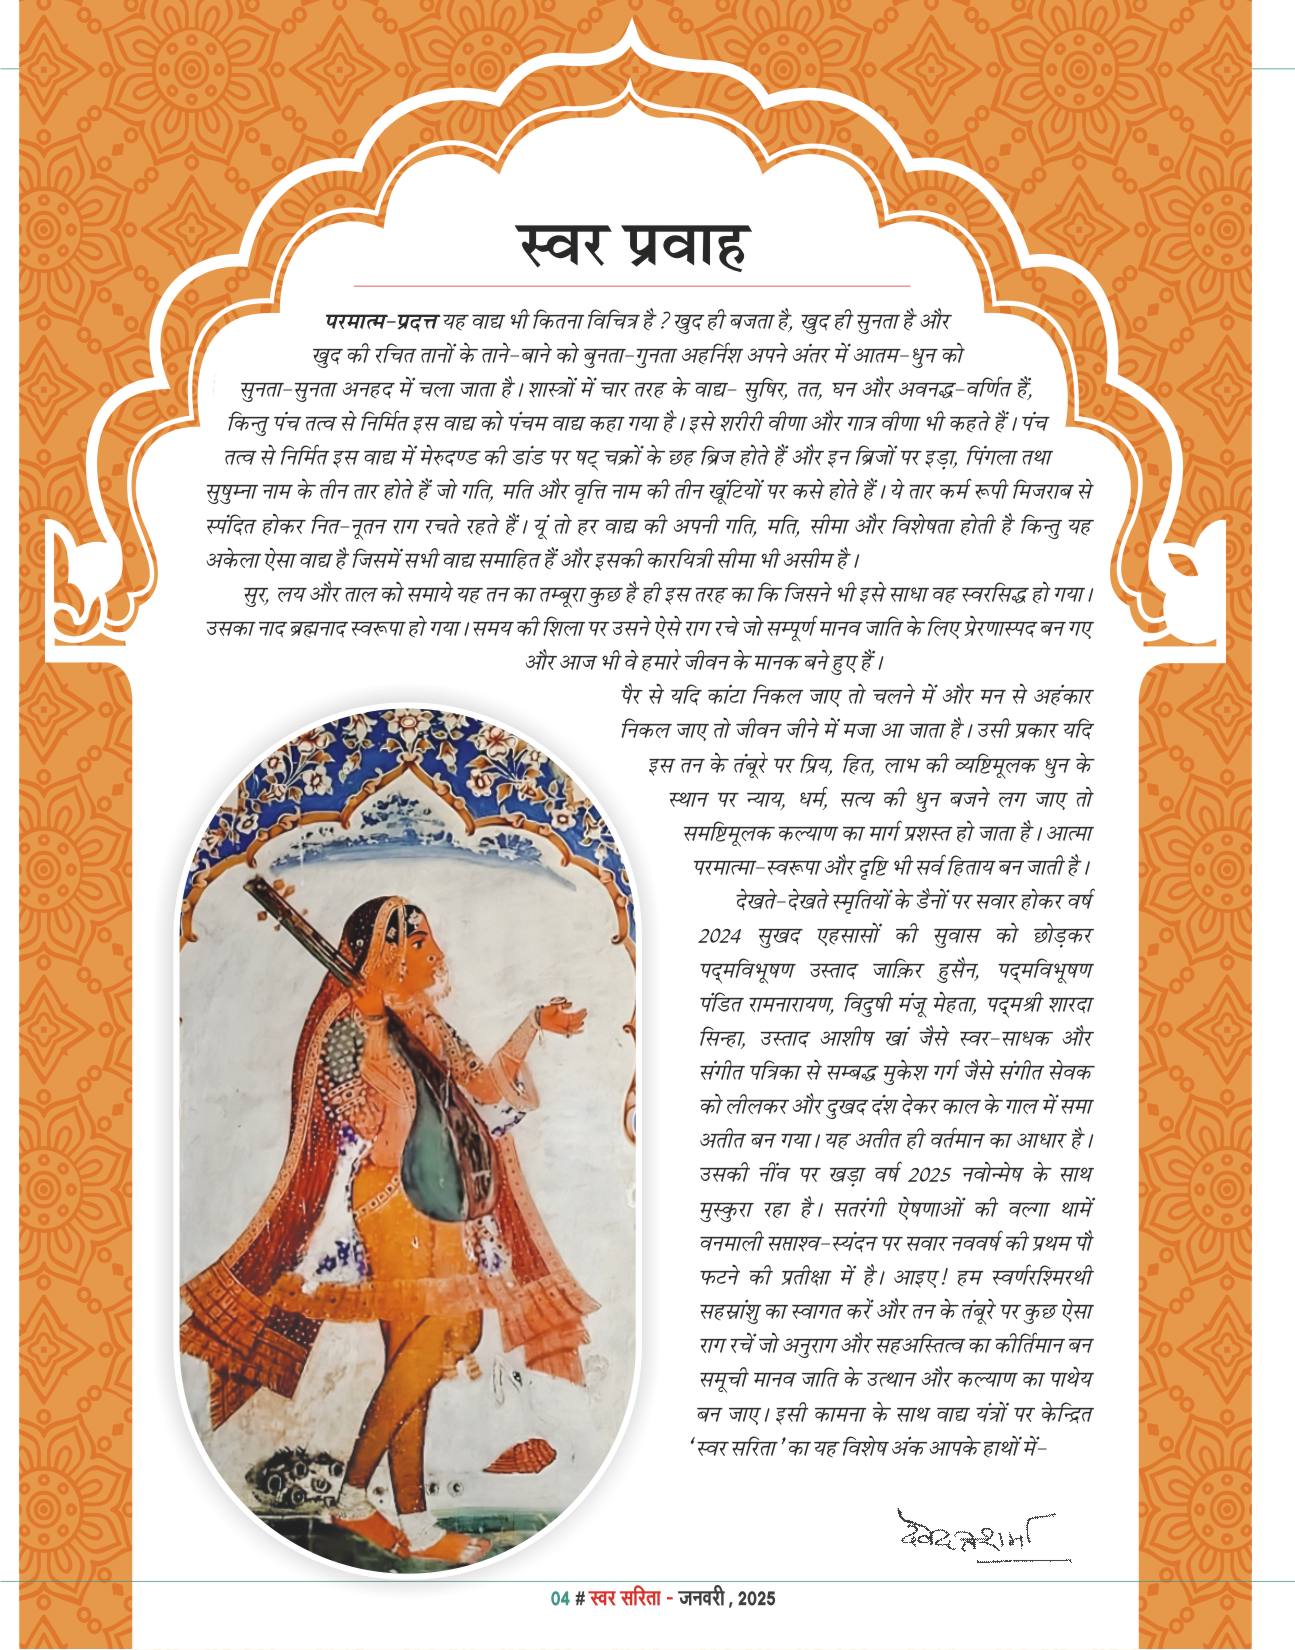 स्वर प्रवाह
परमात्म-प्रदत्त यह वाद्य भी कितना विचित्र है ? खुद ही बजता है, खुद ही सुनता है और
खुद की रचित तानों के ताने-बाने को बुनता-गुनता अहर्निश अपने अंतर में आतम-धुन को
सुनता-सुनता अनहद में चला जाता है। शास्त्रों में चार तरह के वाद्य- सुषिर, तत, घन और अवनद्ध-वर्णित हैं,
किन्तु पंच तत्व से निर्मित इस वाद्य को पंचम वाद्य कहा गया है। इसे शरीरी वीणा और गात्र वीणा भी कहते हैं। पंच
तत्व से निर्मित इस वाद्य में मेरुदण्ड की डांड पर षट् चक्रों के छह ब्रिज होते हैं और इन ब्रिजों पर इड़ा, पिंगला तथा
सुषुम्ना नाम के तीन तार होते हैं जो गति, मति और वृत्ति नाम की तीन खूंटियों पर कसे होते हैं। ये तार कर्म रूपी मिजराब से
स्पंदित होकर नित-नूतन राग रचते रहते हैं। यूं तो हर वाद्य की अपनी गति, मति, सीमा और विशेषता होती है किन्तु यह
अकेला ऐसा वाद्य है जिसमें सभी वाद्य समाहित हैं और इसकी कारयित्री सीमा भी असीम है।
सुर, लय और ताल को समाये यह तन का तम्बूरा कुछ है ही इस तरह का कि जिसने भी इसे साधा वह स्वरसिद्ध हो गया।
उसका नाद ब्रह्मनाद स्वरूपा हो गया। समय की शिला पर उसने ऐसे राग रचे जो सम्पूर्ण मानव जाति के लिए प्रेरणास्पद बन गए
और आज भी वे हमारे जीवन के मानक बने हुए हैं।
पैर से यदि कांटा निकल जाए तो चलने में और मन से अहंकार
निकल जाए तो जीवन जीने में मजा आ जाता है। उसी प्रकार यदि
इस तन के तंबूरे पर प्रिय, हित, लाभ की व्यष्टिमूलक धुन के
स्थान पर न्याय, धर्म, सत्य की धुन बजने लग जाए तो
समष्टिमूलक कल्याण का मार्ग प्रशस्त हो जाता है। आत्मा
परमात्मा-स्वरूपा और दृष्टि भी सर्व हिताय बन जाती है।
देखते-देखते स्मृतियों के डैनों पर सवार होकर वर्ष
2024 सुखद एहसासों की सुवास को छोड़कर
पद्मविभूषण उस्ताद जाक़िर हुसैन, पद्मविभूषण
पंडित रामनारायण, विदुषी मंजू मेहता, पद्मश्री शारदा
सिन्हा, उस्ताद आशीष खां जैसे स्वर-साधक और
संगीत पत्रिका से सम्बद्ध मुकेश गर्ग जैसे संगीत सेवक
को लीलकर और दुखद दंश देकर काल के गाल में समा
अतीत बन गया। यह अतीत ही वर्तमान का आधार है।
उसकी नींव पर खड़ा वर्ष 2025 नवोन्मेष के साथ
मुस्कुरा रहा है। सतरंगी ऐषणाओं की वल्गा थामें
वनमाली सप्ताश्व-स्यंदन पर सवार नववर्ष की प्रथम पौ
फटने की प्रतीक्षा में है। आइए! हम स्वर्णरश्मिरथी
सहस्रांशु का स्वागत करें और तन के तंबूरे पर कुछ ऐसा
राग रचें जो अनुराग और सहअस्तित्व का कीर्तिमान बन
समूची मानव जाति के उत्थान और कल्याण का पाथेय
बन जाए। इसी कामना के साथ वाद्य यंत्रों पर केन्द्रित
‘स्वर सरिता’ का यह विशेष अंक आपके हाथों में-
देवदत्त शर्मा
04 # स्वर सरिता - जनवरी, 2025